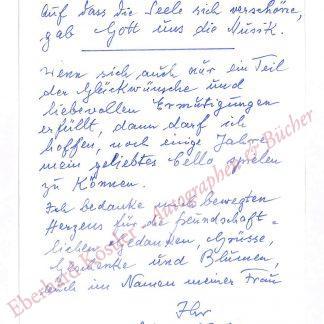 Auf dass die Seele sich verschöne,
gab Gott uns die Musik.
Wenn sich auch nur ein Teil
der Glückwünsche und
liebevollen Ermutigungen
erfüllt, dann darf ich
hoffen, noch einige Jahre
mein geliebtes Cello spielen
zu können.
Ich bedanke mich bewegten
Herzens für die freundschaft-
lichen Gedanken, Grüsse,
Geschenke und Blumen,
auch im Namen meiner Frau
Ihr
Eberhard Köstler - Autographen & Bücher